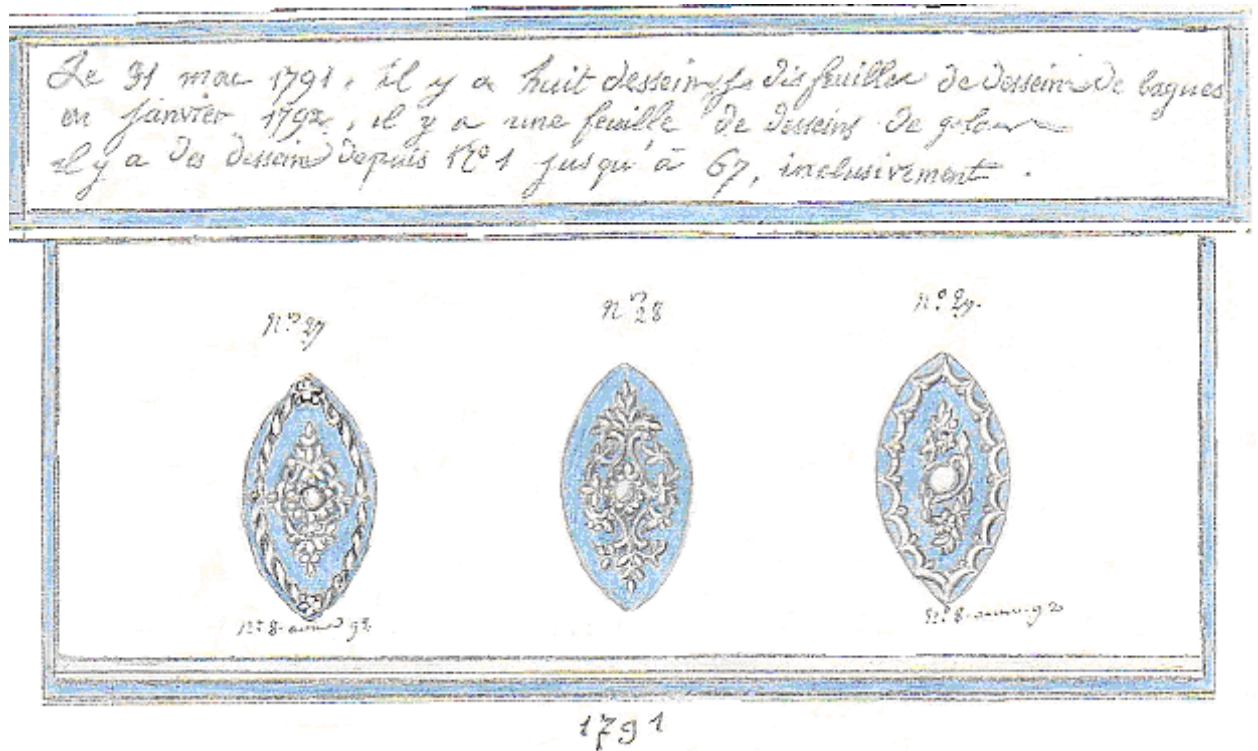 Le 31 mai 1791, il y a huit desseins dix feuilles de desseins de bagues
en janvier 1792, il y a une feuille de desseins de
il y a des desseins depuis N.º 1 jusqu'à 67, inclusivement.
N.º 27
N.º 28
N.º 29.
N.º 8. 92
N.º 8. 92
1791